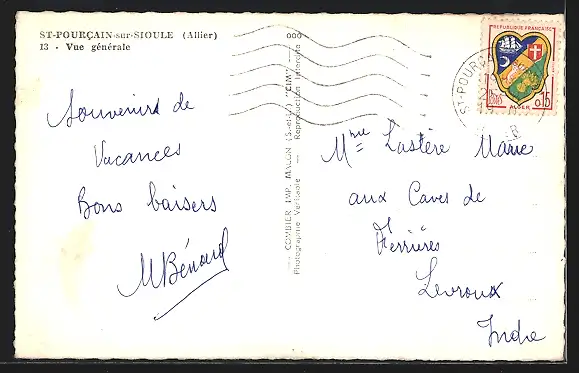 ST-POURÇAIN-sur-SIOULE (Allier)
13 - Vue générale
Souvenirs de
Vacances
Bons baisers
MBénard
COMBIER IMP. MACON (S.-et-L.) "CIM"
Photographie Véritable - Reproduction Interdite
REPUBLIQUE FRANÇAISE
POSTES
0,15
ALGER
ST-POURÇ
Mme Lastère Marie
aux Caves de
Ferrières
Levroux
Indre